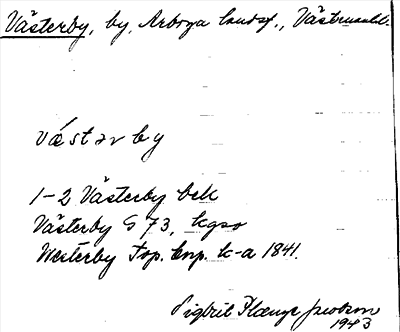 Västerby, by, Arboga landsf., Västmanld.
västərby
1-2 Västerby bek
Västerby G 73, kgso
Westerby Top. Corp. k-a 1841.
Sigbrit Plænge Jacobson
1943